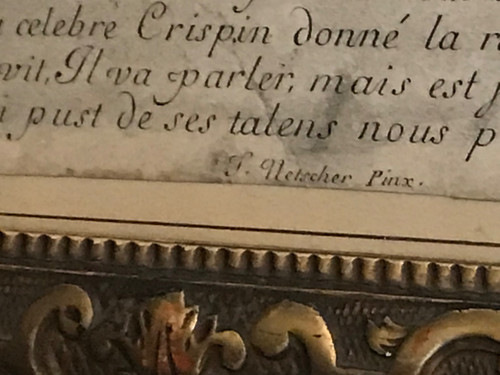 celebre Crispin donné la r
vit, Il va parler, mais est
pust de ses talens nous p
T. Netscher Pinx.